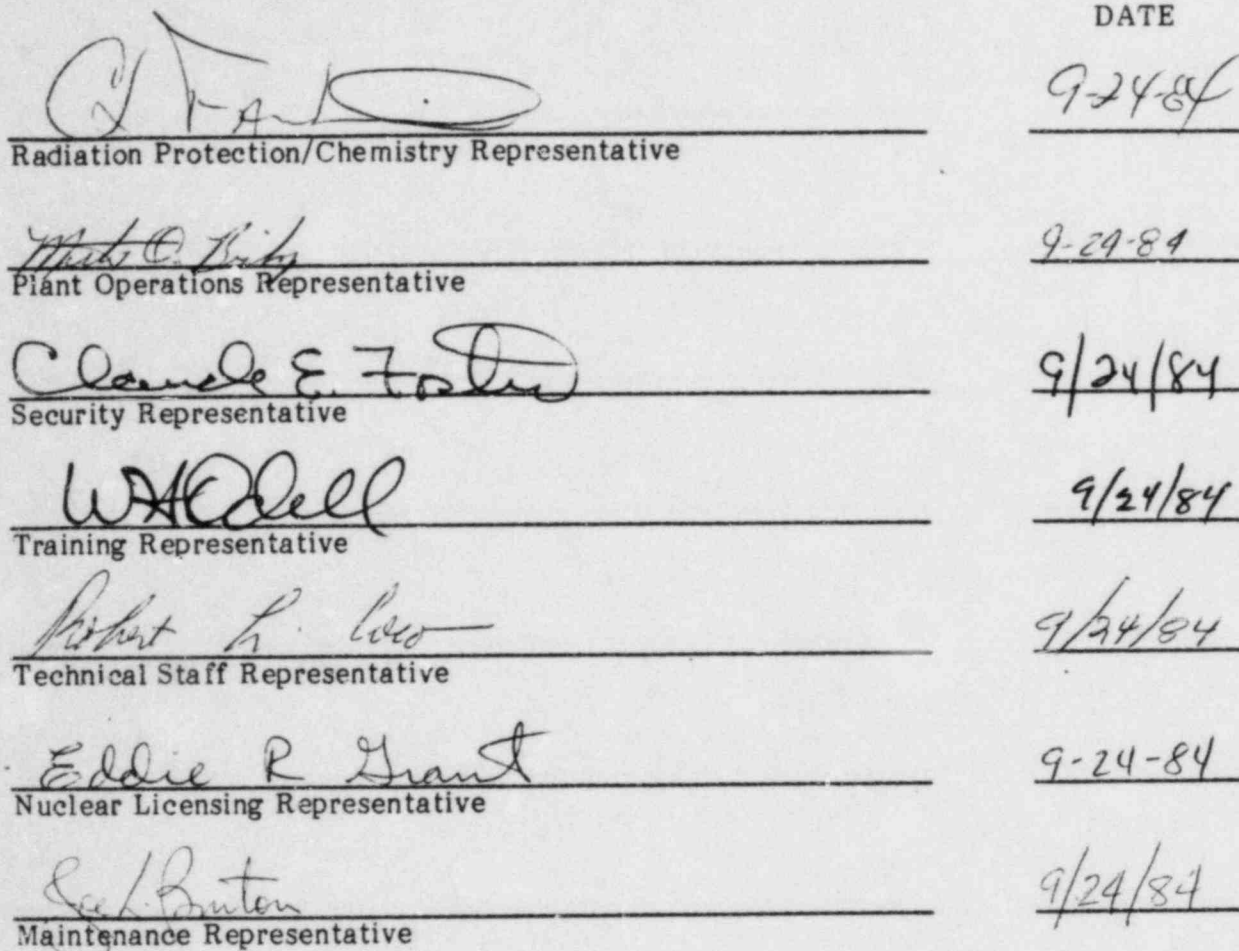 DATE
9-24-84
Radiation Protection/Chemistry Representative
9-24-84
Plant Operations Representative
Claude E. Foster 9/24/84
Security Representative
WHOdell 9/24/84
Training Representative
Robert L. 9/24/84
Technical Staff Representative
Eddie R Grant 9-24-84
Nuclear Licensing Representative
L. Burton 9/24/84
Maintenance Representative